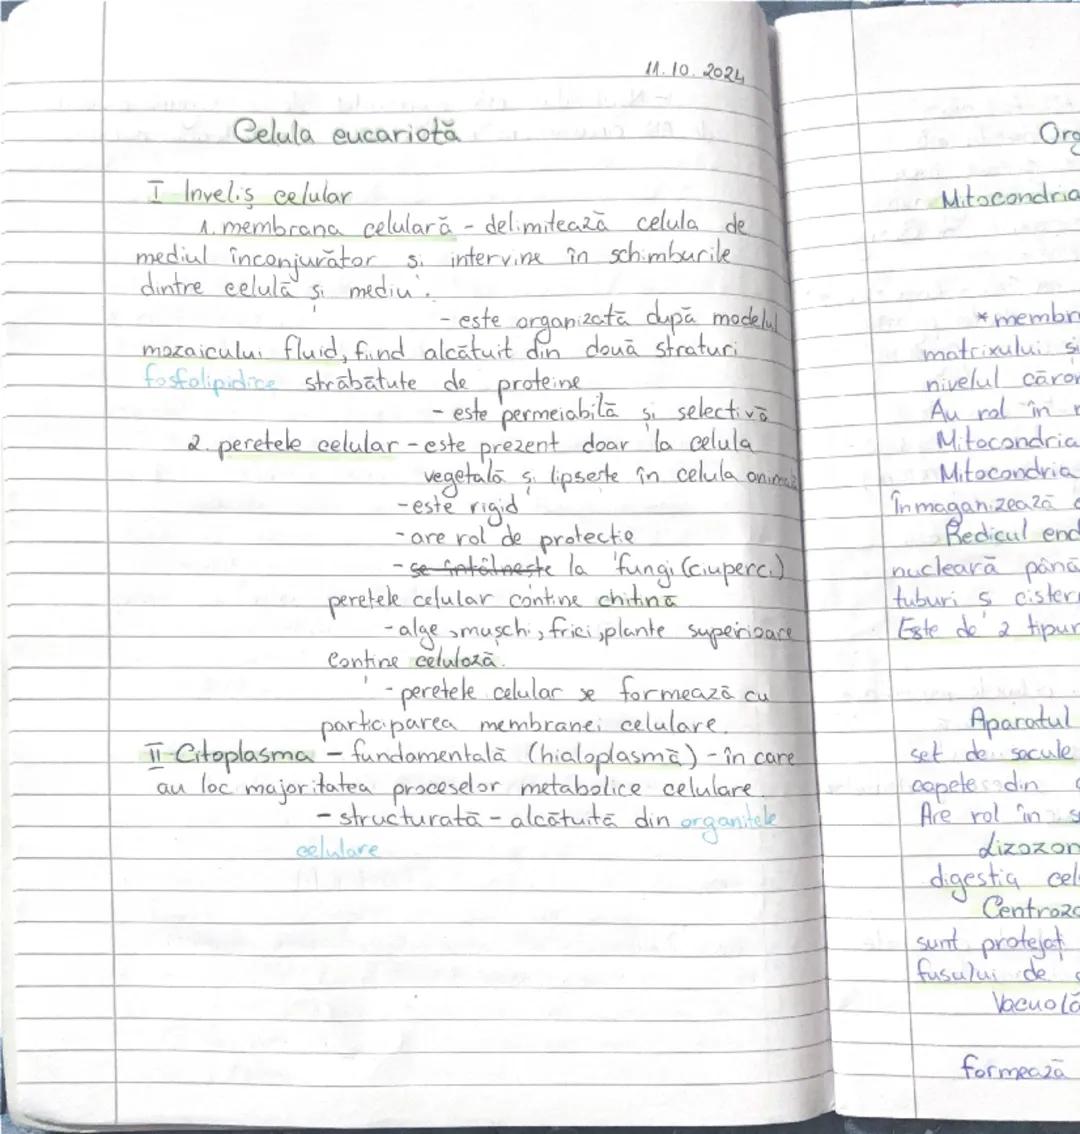 11.10.2024
Celula eucariotă
I Inveliș celular
1. membrana celulară - delimitează celula de
mediul înconjurător și intervine în schimburile
dintre celulă și mediu.
- este organizată după modelul
mozaicului fluid, fiind alcătuit din două straturi
fosfolipidice străbătute de proteine
- este permeiabilă și selectivă
2. peretele celular - este prezent doar la celula
vegetală și lipsește în celula animală
- este rigid
- are rol de protecție
- se întâlnește la fungi (ciuperci)
peretele celular conține chitină
- alge, mușchi, frici, plante superioare
conține celuloză.
- peretele celular se formează cu
participarea membranei celulare.
II Citoplasma - fundamentală (hialoplasmă) - în care
au loc majoritatea proceselor metabolice celulare.
- structurată - alcătuită din organitele
celulare
Org
Mitocondria
* membr
matrixului și
nivelul căror
Au rol în
Mitocondria
Mitocondria
Înmaganizează
Redicul end
nucleară până
tuburi ș cister
Este de 2 tipur
Aparatul
set de sacule
capete din
Are rol în s
Lizozom
digestia cel
Centrozo
sunt protejat
fusului de
Vacuolă
formează